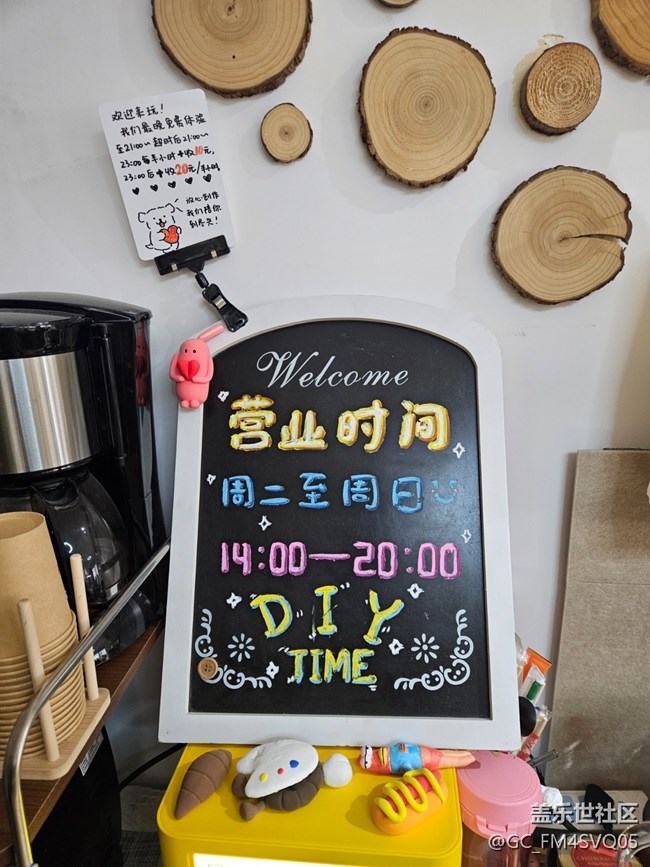 欢迎来玩！
我们最晚免费体验
至21:00～超时后21:00～
23:00每半小时+收10元，
23:00后+收20元/半小时
放心创作
我们陪你
到尽头！
Welcome
营业时间
周二至周日
14:00—20:00
DIY
TIME
盖乐世社区
@GC_FM4SVQ05